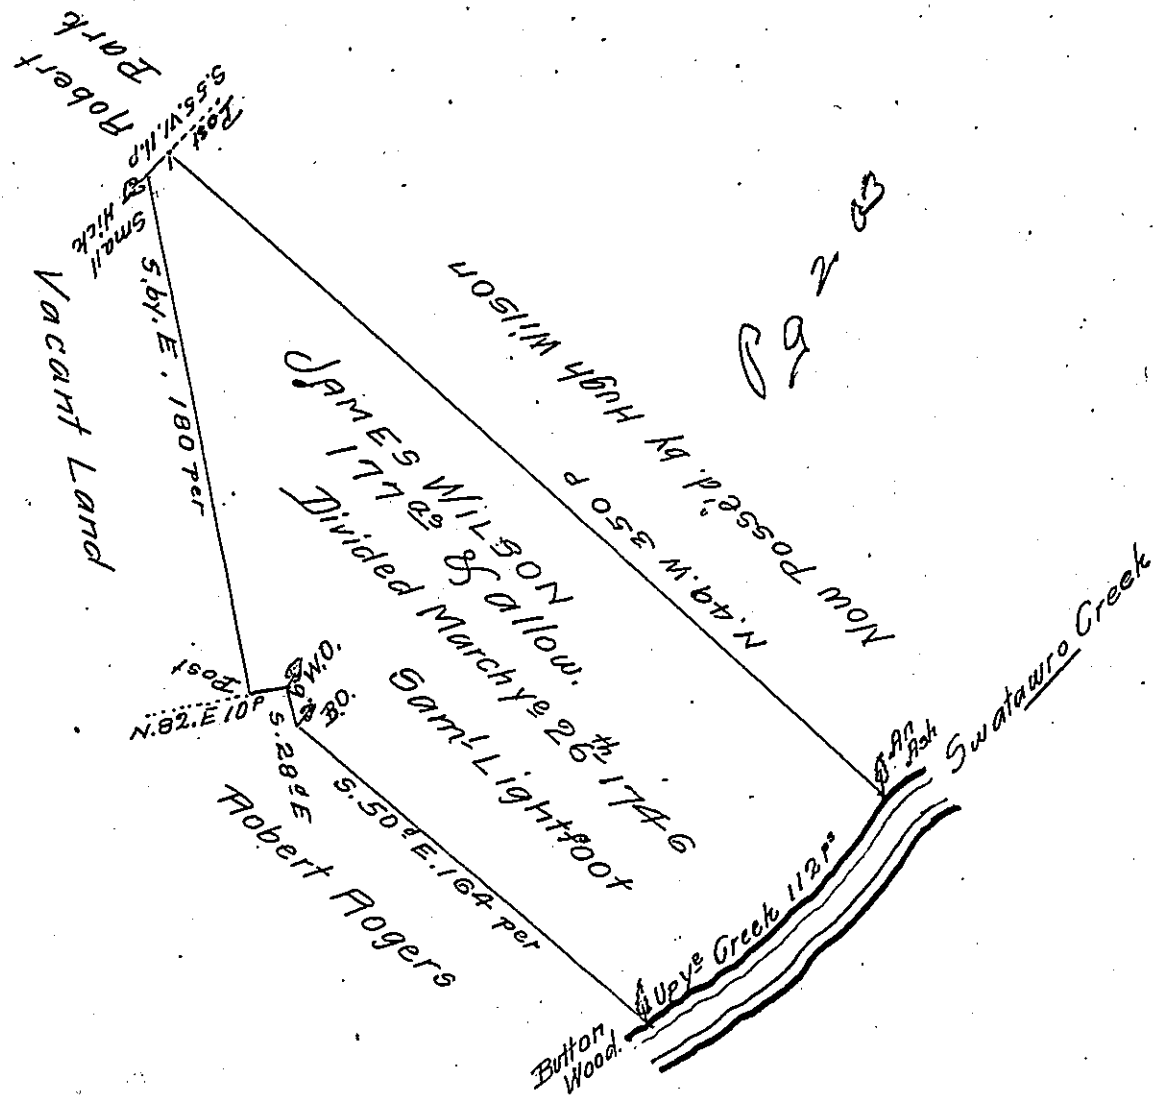 Robert
Park
S.55.W.11.P
Post
Small
Hick
Vacant Land
S.by.E. 180 Per
Now Posse'd. by Hugh Willson
N.49.W 350 P
JAMES WILSON
177 as & allow.
Divided March ye 26th 1746
Saml Lightfoot
Post
N.82.E 10P
W.O.
B.O.
S.28d E
S.50d E.164 per
Robert Rogers
An
Ash
Swatawro Creek
Up ye Creek 112 Ps
Button
Wood.